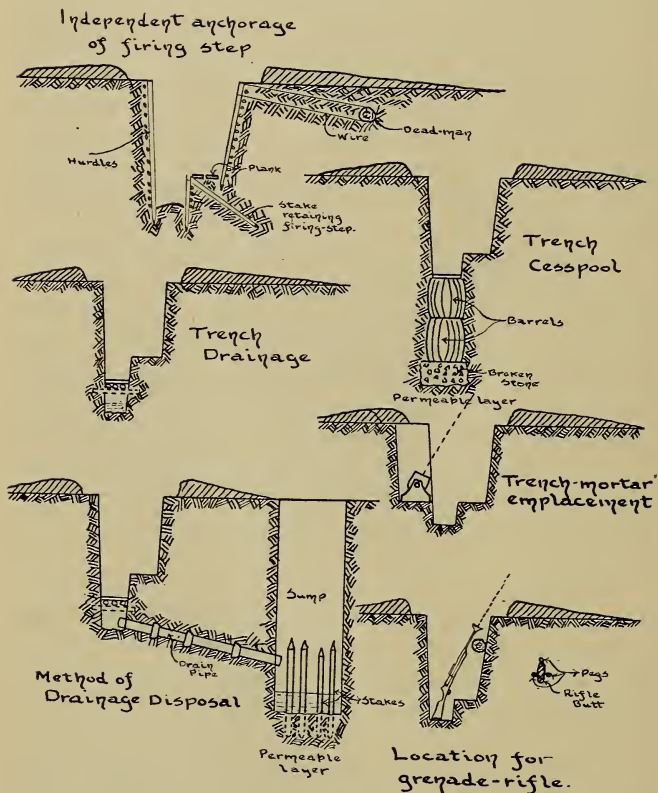 Independent anchorage
of firing step
Hurdles
Wire
Dead-man
Plank
Stake
retaining
firing-step.
Trench
Cesspool
Barrels
Broken
Stone
Permeable layer
Trench
Drainage
Trench-mortar
emplacement
Sump
Drain
Pipe
Method of
Drainage Disposal
Stakes
Permeable
layer
Pegs
Rifle
Butt
Location for
grenade-rifle.